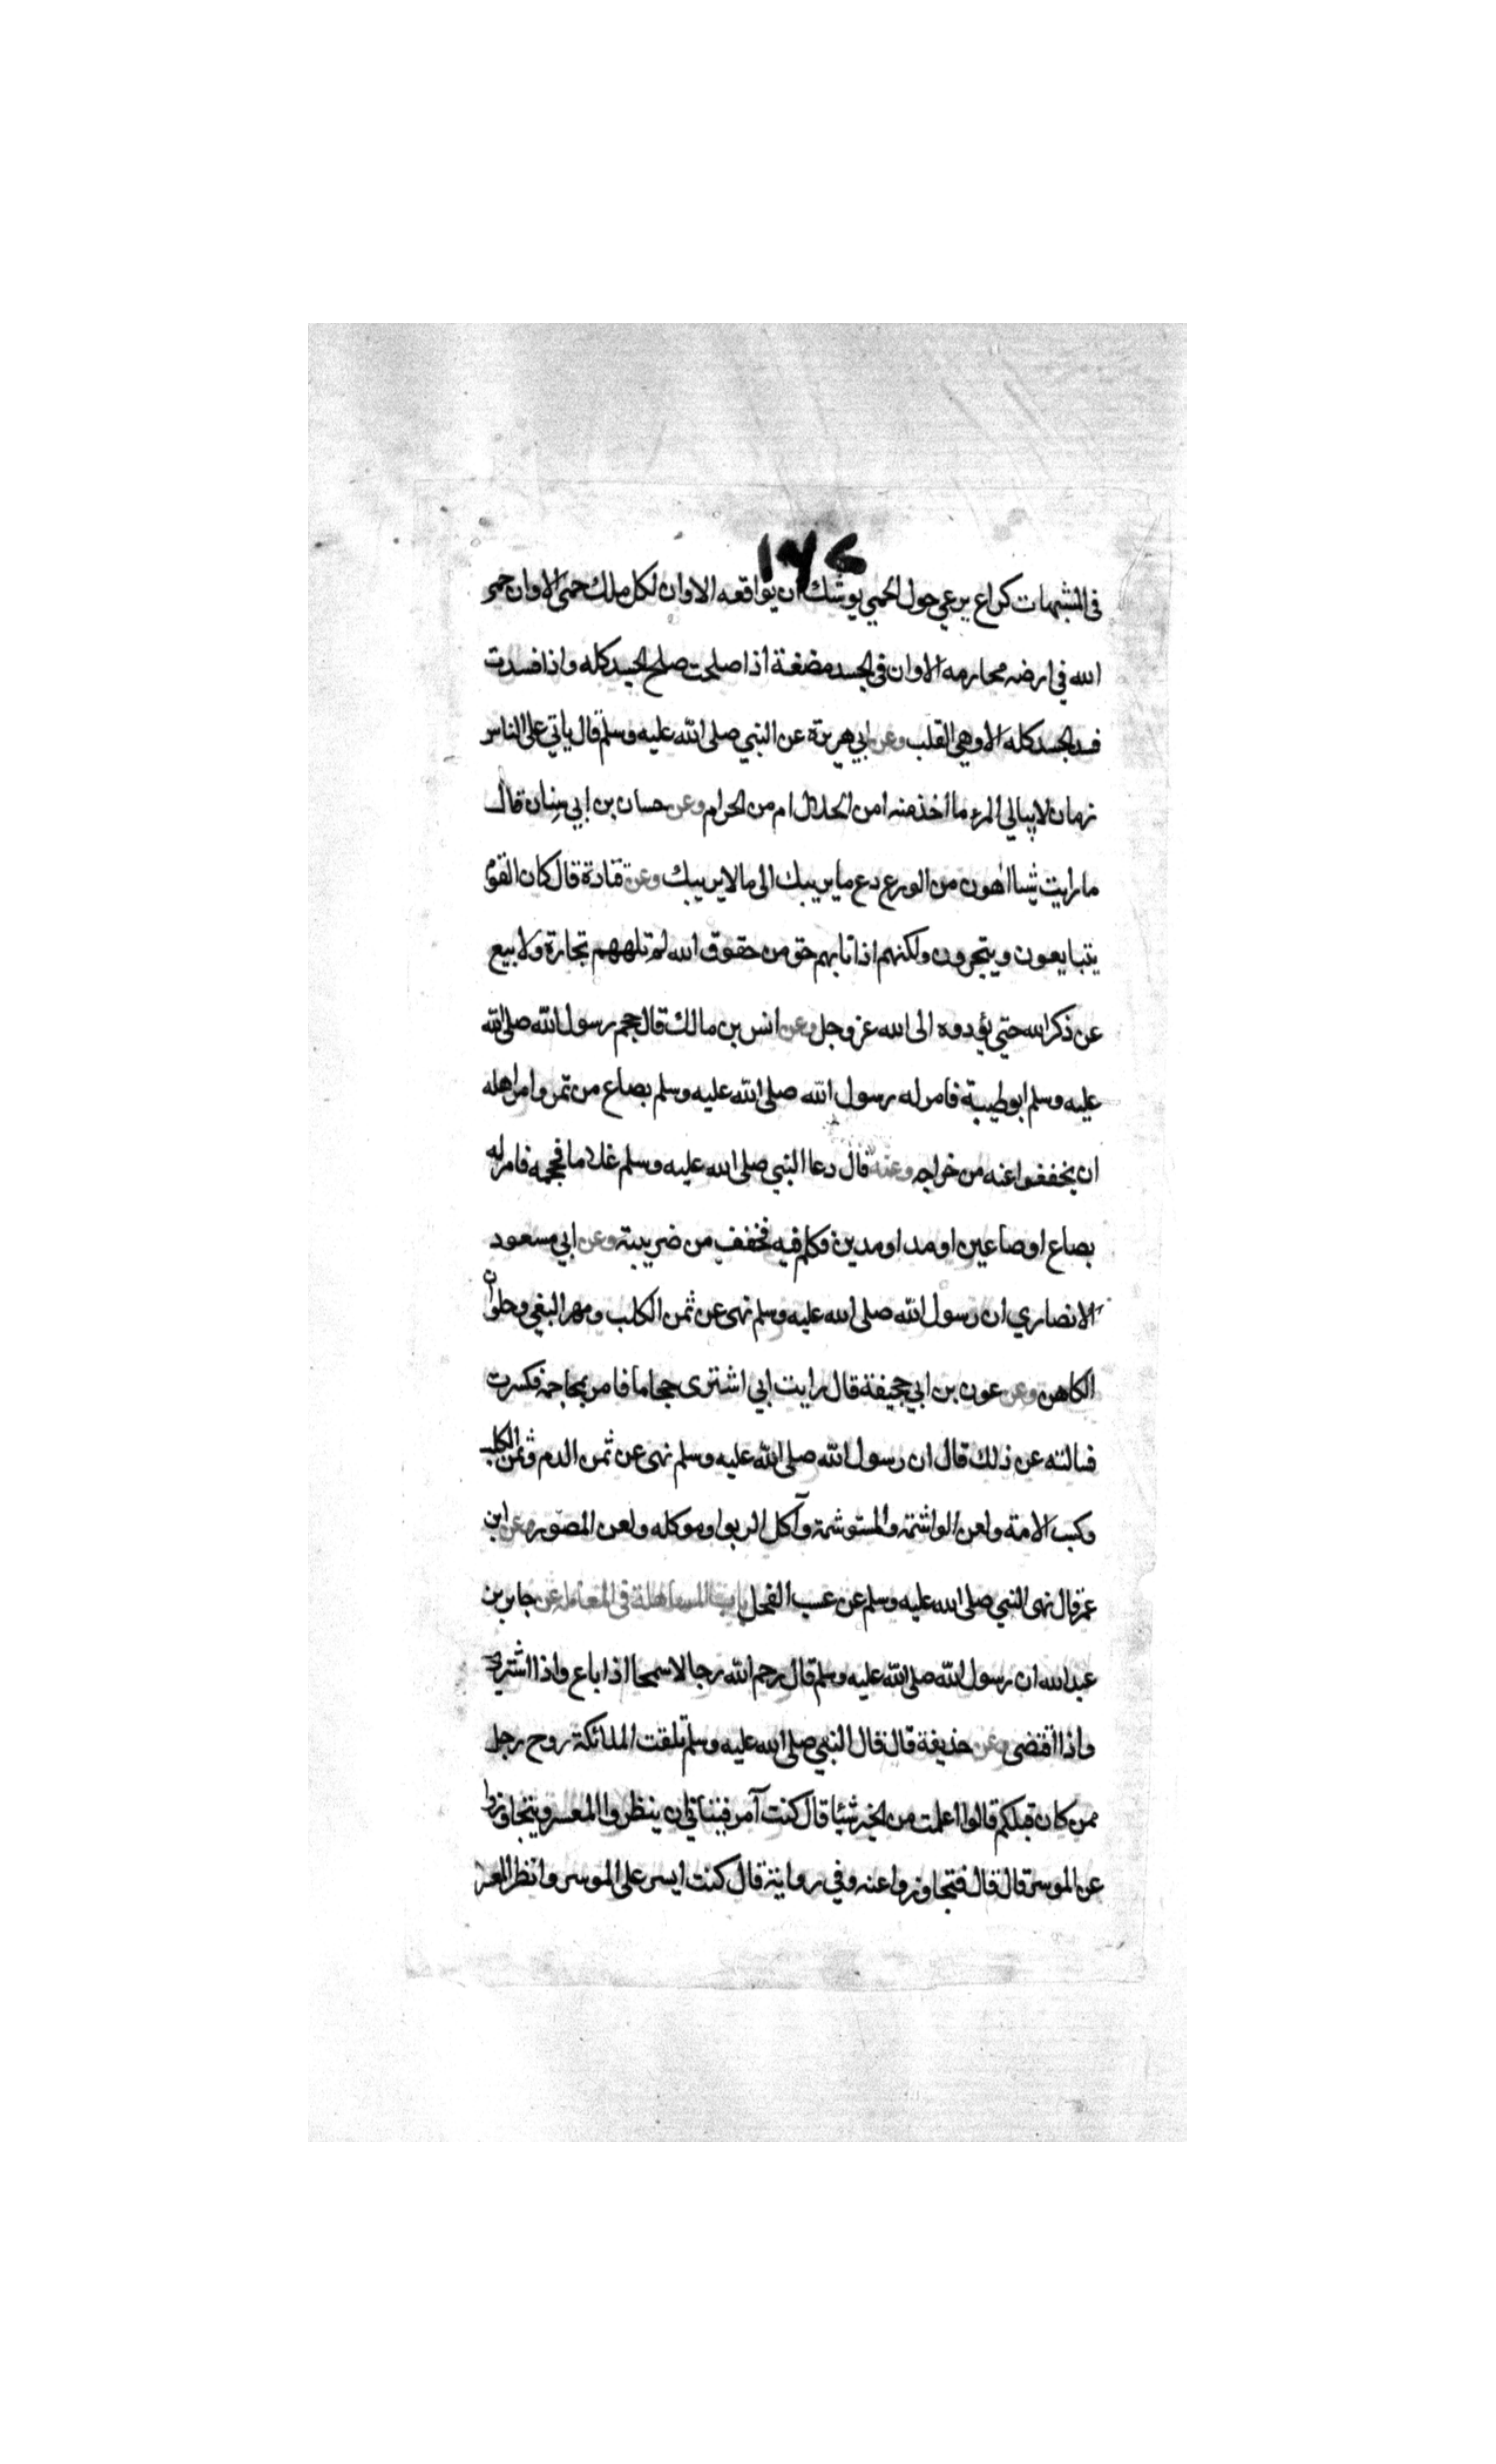 ١٧٤
فى المشبهات كراع يرعي حول الحمي يوشك ان يواقعه الا وان لكل ملك حمى الا وان حمى
الله في ارضه محارمه الا وان فى الجسد مضغة اذا صلحت صلح الجسد كله واذا فسدت
فسد الجسد كله الا وهي القلب وعن ابي هريرة عن النبي صلى الله عليه وسلم قال ياتي على الناس
زمان لا يبالي المرء ما اخذ منه امن الحلال ام من الحرام وعن حسان بن ابي سنان قال
ما رايت شيا اهون من الورع دع ما يريبك الى ما لا يريبك وعن قتادة قال كان القوم
يتبايعون ويتجرون ولكنهم اذا نابهم حق من حقوق الله لم تلههم تجارة ولا بيع
عن ذكر الله حتي يؤدوه الى الله عز وجل وعن انس بن مالك قال حجم رسول الله صلى الله
عليه وسلم ابو طيبة فامر له رسول الله صلى الله عليه وسلم بصاع من تمر وامر اهله
ان يخففوا عنه من خراجه وعنه قال دعا النبي صلى الله عليه وسلم غلاما فحجمه فامر له
بصاع او صاعين او مد او مدين وكلم فيه فخفف من ضريبته وعن ابي مسعود
الانصاري ان رسول الله صلى الله عليه وسلم نهى عن ثمن الكلب ومهر البغي وحلوان
الكاهن وعن عون بن ابي جحيفة قال رايت ابي اشترى حجاما فامر بمحاجمه فكسرت
فسالته عن ذلك قال ان رسول الله صلى الله عليه وسلم نهى عن ثمن الدم وثمن الكلب
وكسب الامة ولعن الواشمة والمستوشمة وآكل الربوا وموكله ولعن المصور وعن ابن
عمر قال نهى النبي صلى الله عليه وسلم عن عسب الفحل باب المساهلة فى المعاملة عن جابر بن
عبد الله ان رسول الله صلى الله عليه وسلم قال رحم الله رجلا سمحا اذا باع واذا اشترى
واذا اقتضى وعن حذيفة قال قال النبي صلى الله عليه وسلم تلقت الملائكة روح رجل
ممن كان قبلكم قالوا اعملت من الخير شيئا قال كنت آمر فتيناتي ان ينظروا المعسر ويتجاوزوا
عن الموسر قال قال فتجاوزوا عنه وفي رواية قال كنت ايسر على الموسر وانظر المعسر